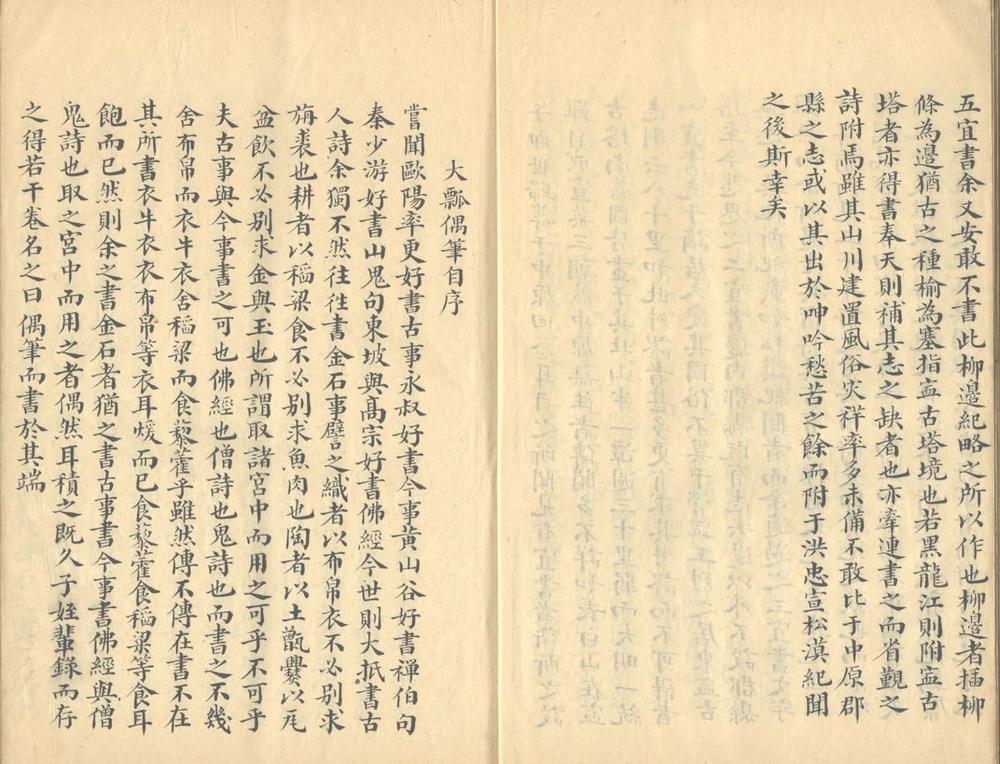 五宜書余又安敢不書此柳邊紀略之所以作也柳邊者插柳
條為邊猶古之種榆為塞指寍古塔境也若黑龍江則附寍古
塔者亦得書奉天則補其志之缺者也亦牽連書之而省觀之
詩附焉雖其山川建置風俗灾祥率多未備不敢比于中原郡
縣之志或以其出於呻吟愁苦之餘而附于洪忠宣松漠紀聞
之後斯幸矣
大瓢偶筆自序
嘗聞歐陽率更好書古事永叔好書今事黃山谷好書禪伯句
秦少游好書山鬼句東坡與高宗好書佛經今世則大抵書古
人詩余獨不然往往書金石事譬之織者以布帛衣不必別求
旃裘也耕者以稻粱食不必別求魚肉也陶者以土甑罍以瓦
盆飲不必別求金與玉也所謂取諸宮中而用之可乎不可乎
夫古事與今事書之可也佛經也僧詩也鬼詩也而書之不幾
舍布帛而衣牛衣舍稻粱而食藜藿乎雖然傳不傳在書不在
其所書衣牛衣衣布帛等衣耳煖而已食藜藿食稻粱等食耳
飽而已然則余之書金石者猶之書古事書今事書佛經與僧
鬼詩也取之宮中而用之者偶然耳積之既久子姪輩錄而存
之得若干卷名之曰偶筆而書於其端